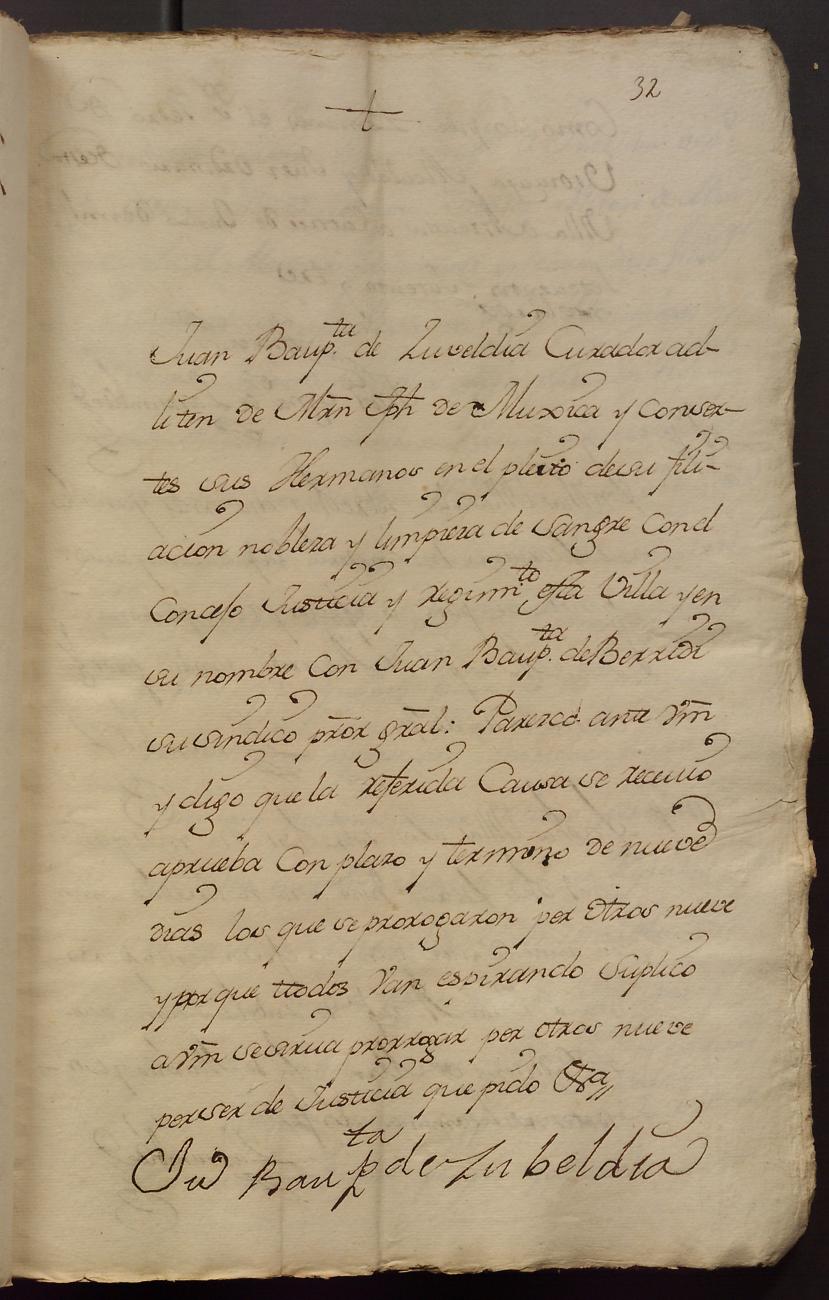 32
+
Juan Baup.ta de Zuveldia Curador ad-
liten de Mrn Jph de Muxica y Consor-
tes sus Hermanos en el pleito de su fili-
acion nobleza y limpieza de sangre Con el
Concejo Justicia y regimi.to esta Villa y en
su nombre Con Juan Baup.ta de Berridi
su sindico prõr grãl: Parezco ante Vm̃
y digo que la referida Causa se reciuio
aprueba Con plazo y termino de nueve
dias los que se prorogaron por otros nueve
y porque ttodos Van espirando Suplico
a Vm̃ se sirua prorrogar por otros nueve
por ser de Justicia que pido &ta,,
Juº Baup.ta de Zubeldia